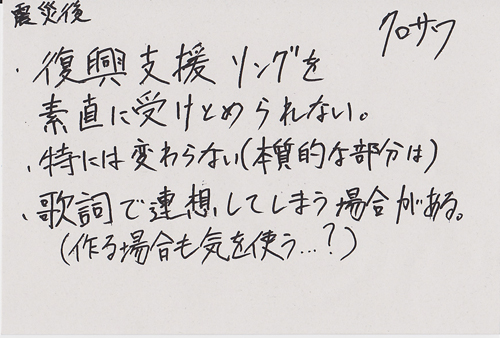 震災後
クロサワ
・復興支援リングを
素直に受けとめられない。
・特には変わらない(本質的な部分は)
・歌詞で連想してしまう場合がある。
(作る場合も気を使う…?)